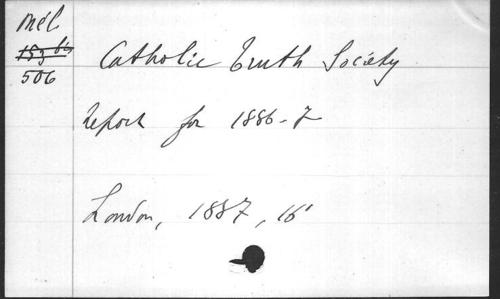 Mél
506
Catholic Truth Society
Report for 1886-7
London, 1887, 16°